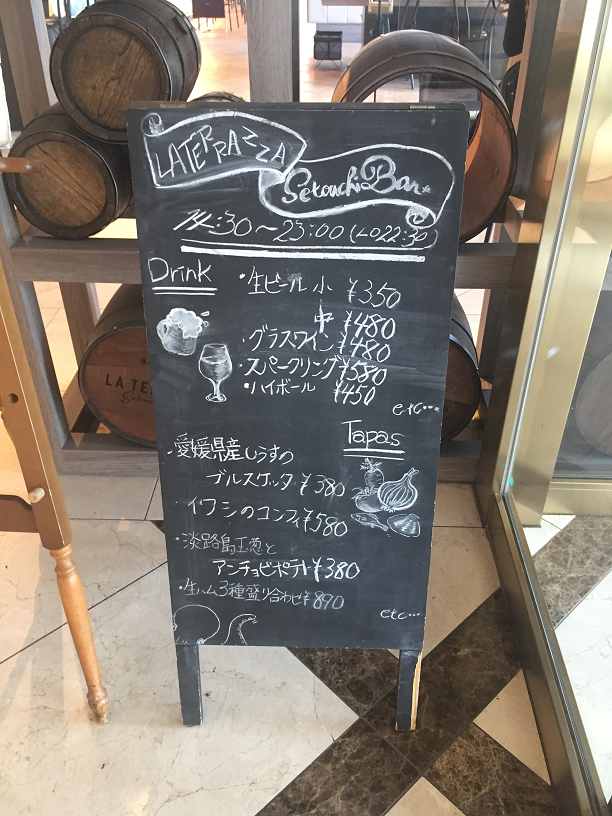 LA TERRAZZA
Setouchi Bar
:30～23:00 (LO 22:30)
Drink
・生ビール 小 ¥350
中 ¥480
・グラスワイン ¥480
・スパークリング ¥580
・ハイボール ¥450
etc…
Tapas
・愛媛県産しらすの
ブルスケッタ ¥380
・イワシのコンフィ ¥580
・淡路島玉葱と
アンチョビポテト ¥380
・生ハム3種盛り合わせ ¥890
etc…
LA TE